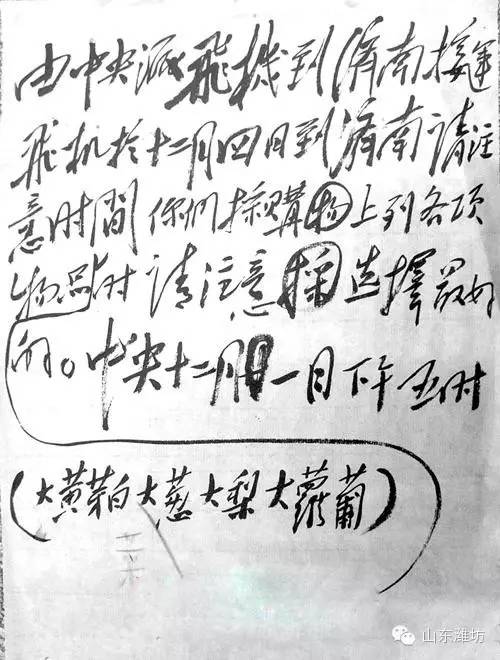 由中央派飛機到濟南接運
飛机於十二月四日到濟南請注
意时間你們採購物上列各項
物品时請注意採选擇最好
的。中央十二月一日下午五时
(大黃芽白大葱大梨大蘿蔔)
菜
山东潍坊